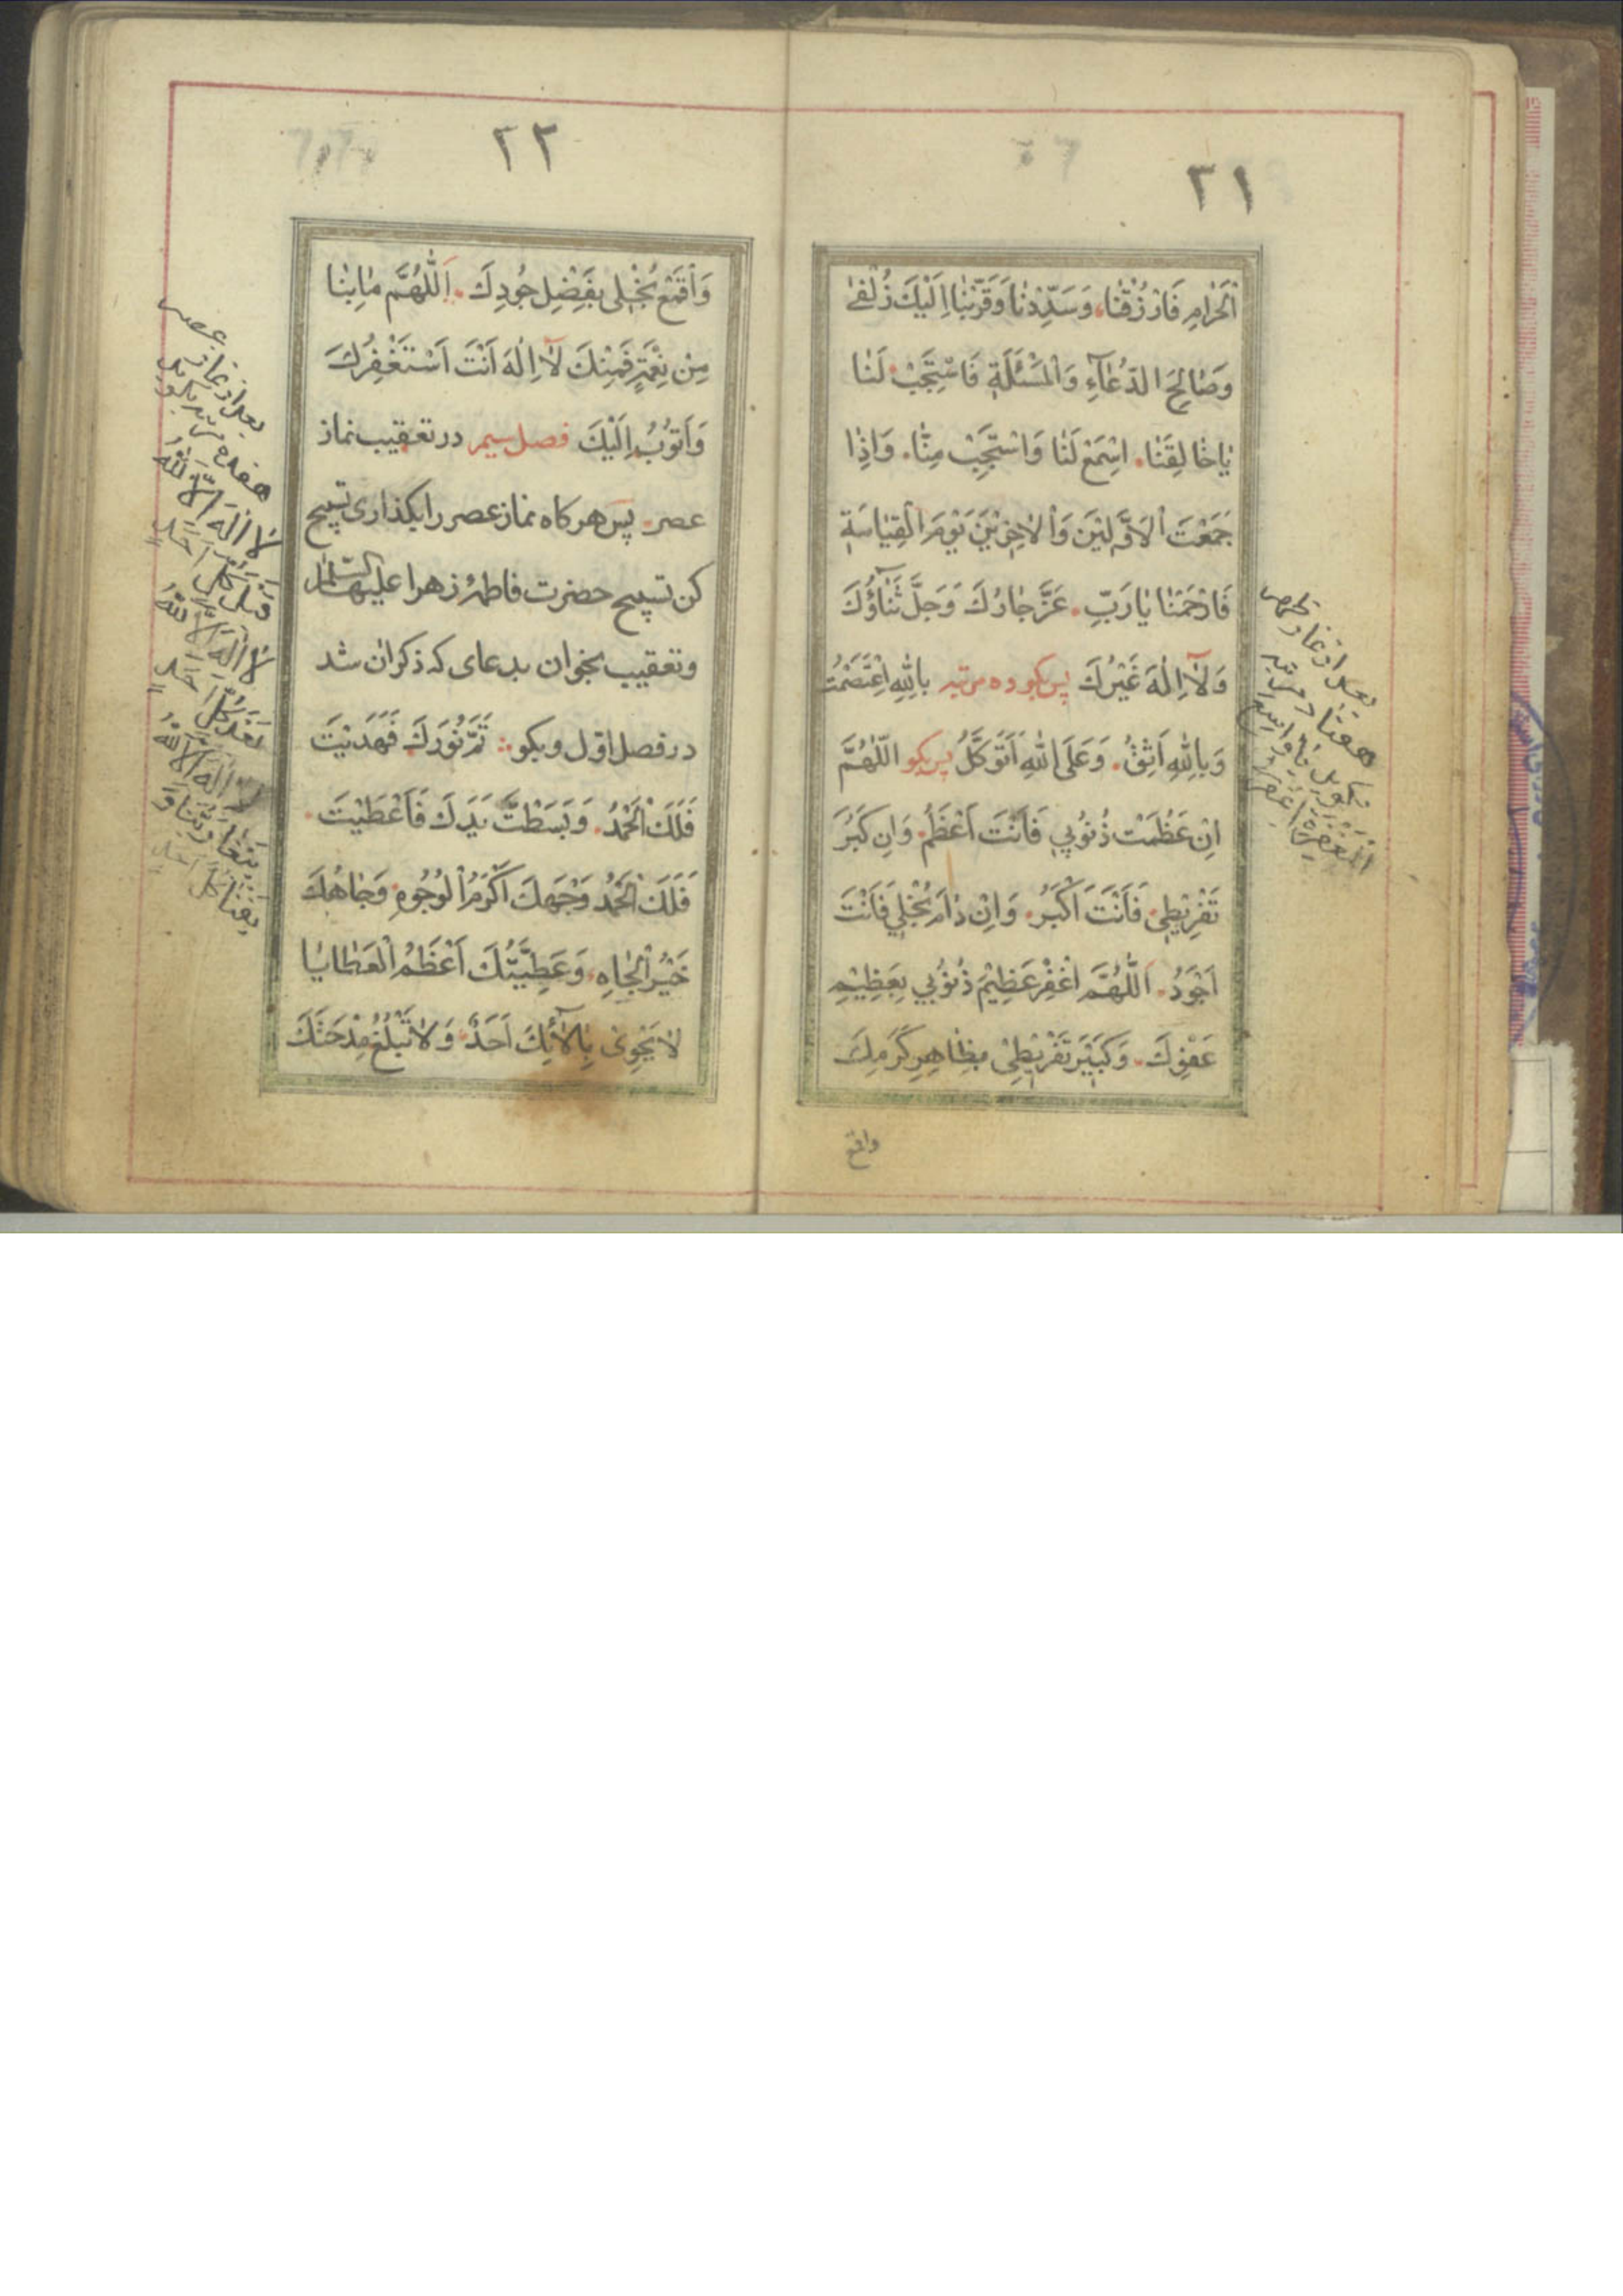 ٢١
اَلْحَرٰامِ فَارْزُقْنٰا، وَسَدِّدْنٰا وَقَرِّبْنٰا اِلَيْكَ زُلْفىٰ
وَصٰالِحَ الدُّعٰآءِ وَالْمَسْئَلَةِ فَاسْتَجِبْ لَنٰا
يٰاخٰالِقَنٰا. اِسْمَعْ لَنٰا وَاسْتَجِبْ مِنّٰا. وَاِذٰا
جَمَعْتَ اْلاَوَّلِيْنَ وَاْلاٰخِرِيْنَ يَوْمَ الْقِيٰامَةِ
فَارْحَمْنٰا يٰارَبِّ. عَزَّ جٰارُكَ وَجَلَّ ثَنٰآؤُكَ
وَلاٰۤاِلٰهَ غَيْرُكَ پس بگو ده مرتبه بِاللّٰهِ اعْتَصَمْتُ
وَبِاللّٰهِ اَثِقُ. وَعَلَى اللّٰهِ اَتَوَكَّلُ پس بگو اَللّٰهُمَّ
اِنْ عَظُمَتْ ذُنُوْبِي فَاَنْتَ اَعْظَمُ. وَاِن كَبُرَ
تَفْرِيْطِي. فَاَنْتَ اَكْبَرُ. وَاِنْ دٰامَ بُخْلِي فَاَنْتَ
اَجْوَدُ. اَللّٰهُمَّ اغْفِرْ عَظِيْمَ ذُنُوْبِي بِعَظِيْمِ
عَفْوِكَ. وَكَبِيْرَ تَفْرِيْطِيْ بِظٰاهِرِ كَرَمِكَ
واقمع
بعد از نماز ظهر
هفتاد مرتبه
بگوید
المغفرة اغفر
٢٢
وَاقْمَعْ بُخْلِى بِفَضْلِ جُودِكَ. اَللّٰهُمَّ مٰابِنٰا
مِنْ نِعْمَةٍ فَمِنْكَ لاٰۤاِلٰهَ اَنْتَ اَسْتَغْفِرُكَ
وَاَتُوْبُ اِلَيْكَ فصل سیم در تعقیب نماز
عصر. پس هرکاه نماز عصر را بکذاری تسبیح
کن تسبیح حضرت فاطمهٔ زهرا علیها السلام
و تعقیب بخوان بدعای که ذکر ان شد
در فصل اوّل و بکو: تَمَّ نُوْرُكَ فَهَدَيْتَ
فَلَكَ الْحَمْدُ. وَبَسَطْتَ يَدَكَ فَاَعْطَيْتَ.
فَلَكَ الْحَمْدُ وَجْهُكَ اَكْرَمُ الْوُجُوهِ. وَجٰاهُكَ
خَيْرُ الْجٰاهِ. وَعَطِيَّتُكَ اَعْظَمُ الْعَطٰايٰا
لاٰيَجْزِى بِاٰلاٰۤئِكَ اَحَدٌ. وَلاٰ تَبْلُغُ مِدْحَتَكَ
بعد از نماز عصر
هفده مرتبه بگوید
لا اله الّا الله
قبل كل احد
لا اله الّا الله
بعد كل احد
لا اله الّا الله
يبقى ربنا و
يفنا كل احد